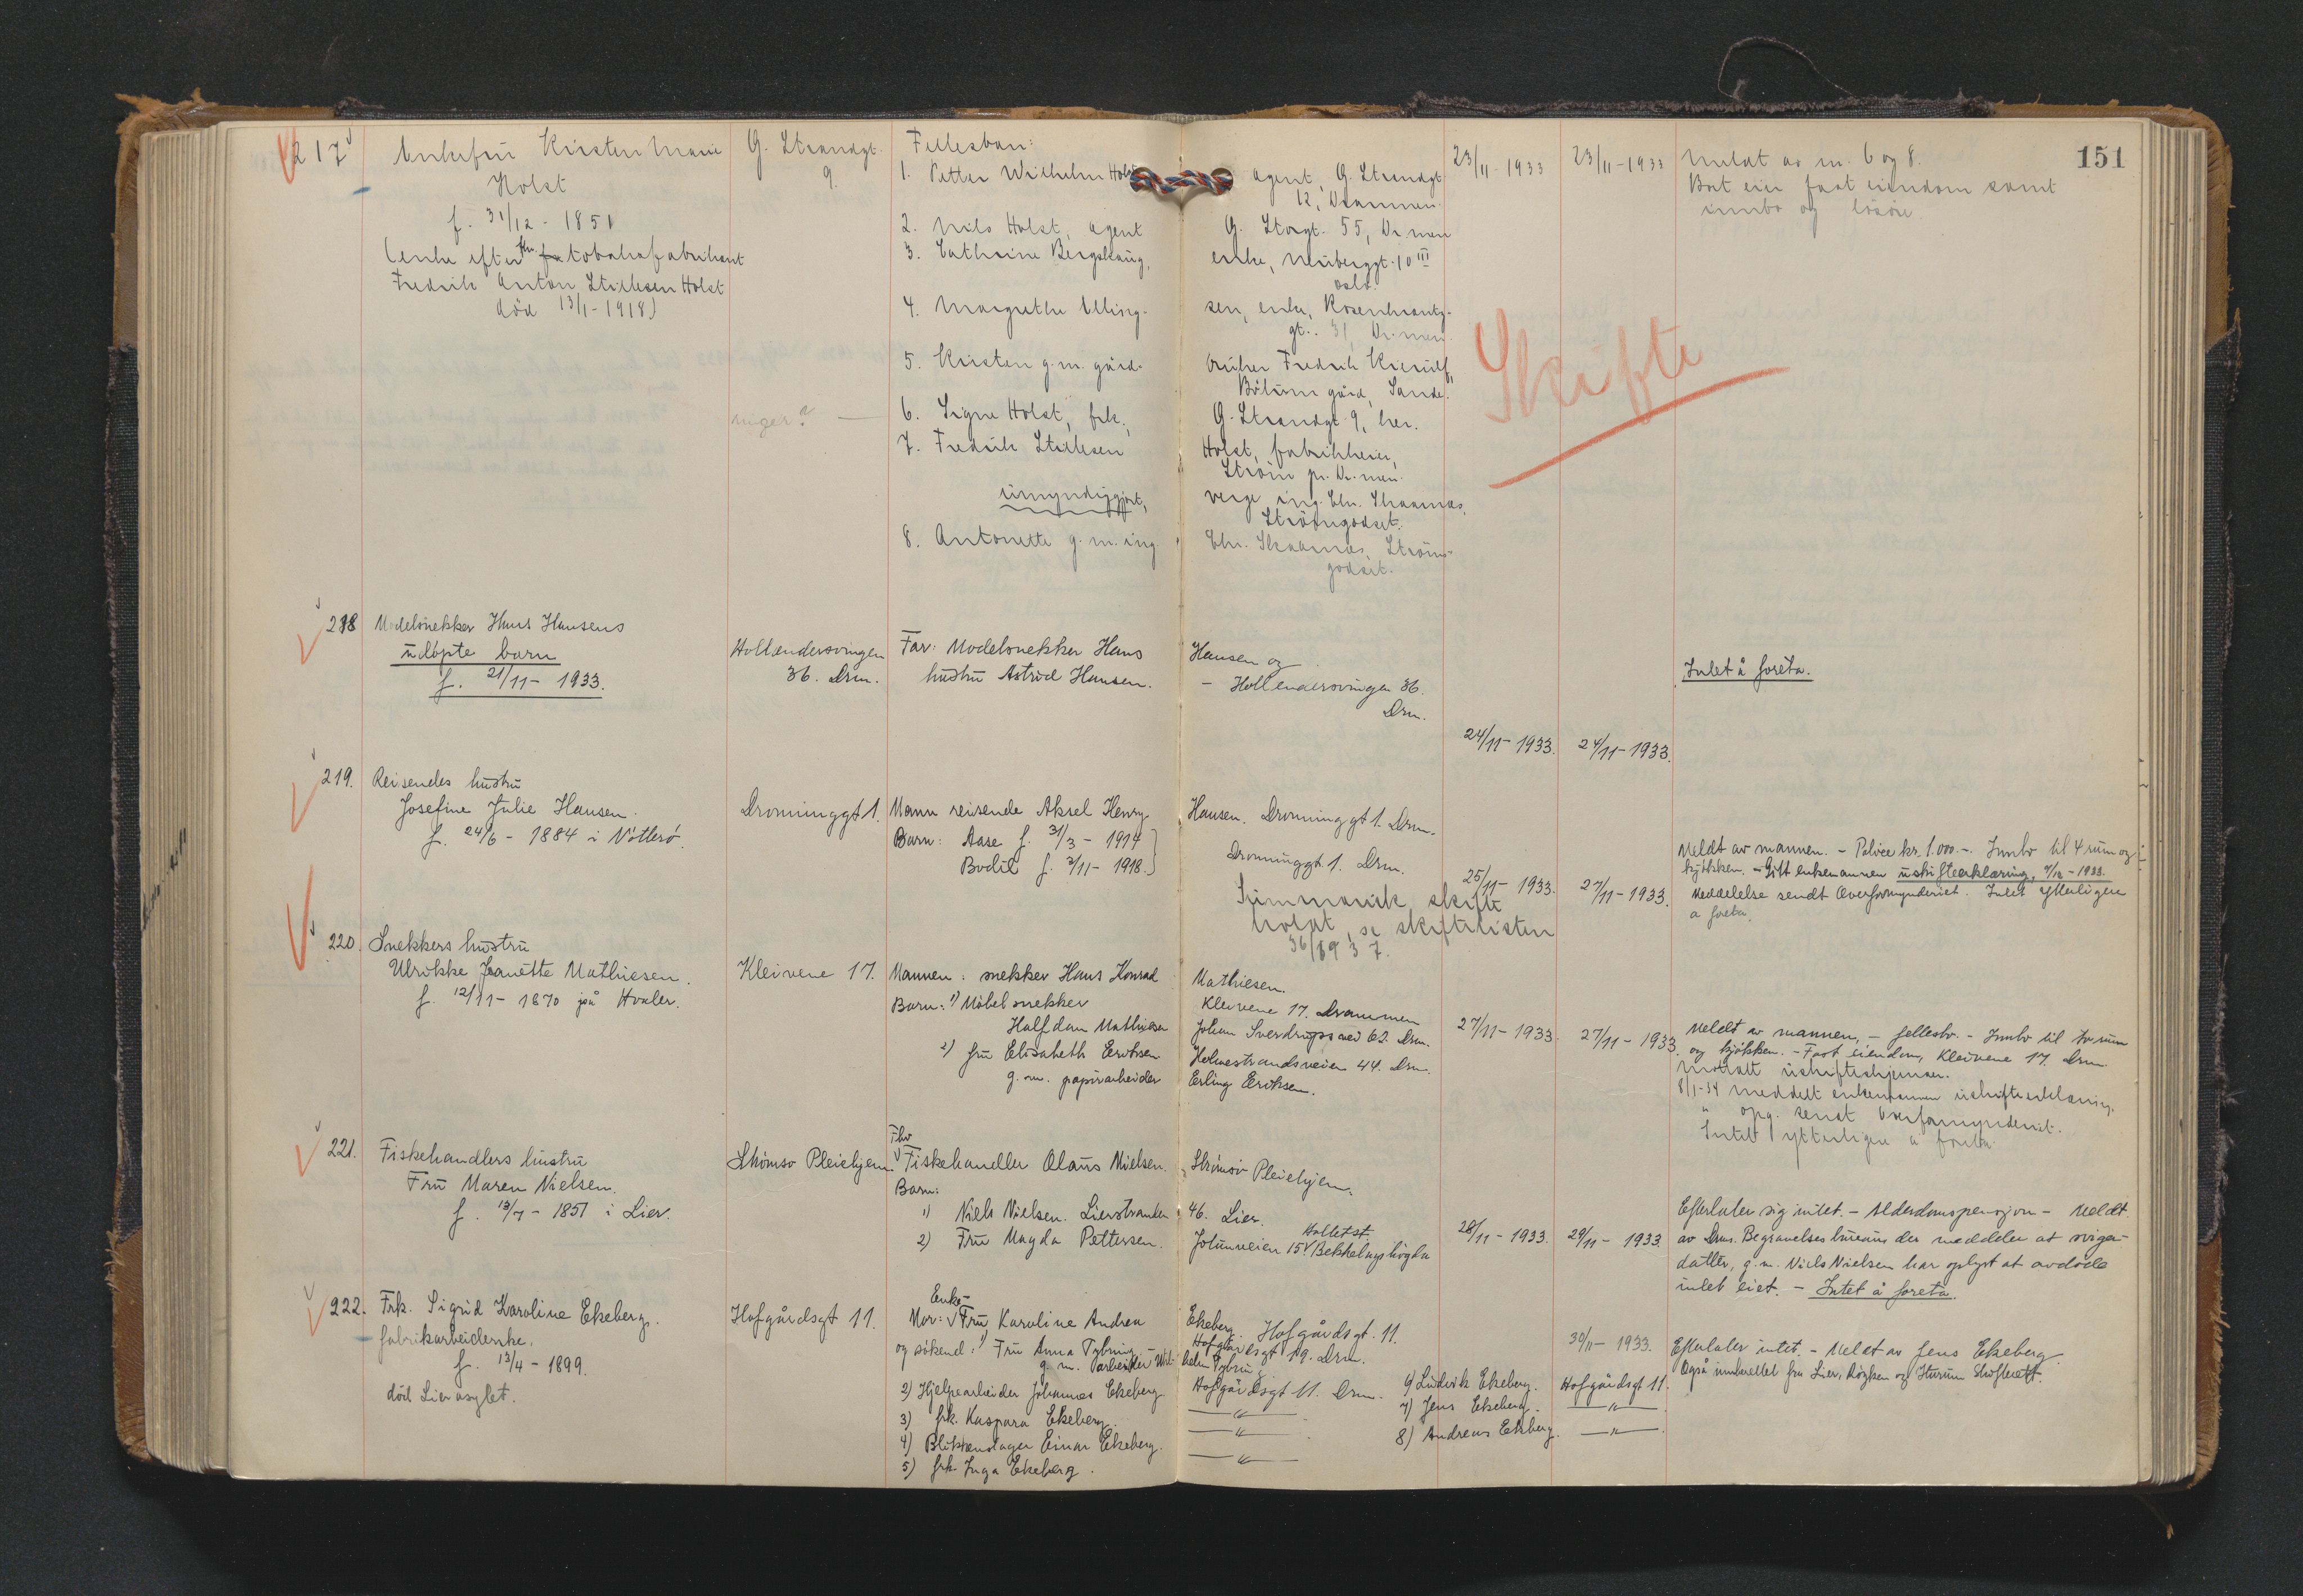 151
217
Enkefru Kirsten Marie
Holst
f. 31/12 - 1851
(enke efter fhv. tobakafabrikant
Fredrik Anton Stillesen Holst
död 13/1-1918)
G. Strandgt.
9.
Fellesbarn:
1. Petter Wilhelm Holst
agent, G. Strandgt.
12, Drammen.
2. Nils Holst, agent
G. Storgt. 55, Dr.men
3. Cathrine Bergskaug,
enke, Neuberggt. 10 III
Oslo.
4. Margrethe Elling-
sen, enke, Rosenkrantz-
gt. 31, Dr.men.
5. Kirsten g.m. gård-
bruker Fredrik Kierulf,
gård, Sande.
6. Signe Holst, frk.,
G. Strandgt 9, her.
7. Fredrik Stillesen
Holst, fabrikkeier,
Ström pr. Dr.men.
umyndiggjort,
verge ing. Chr. Skaanæs,
Strömgodset.
8. Antonette g.m. ing.
Chr. Skaanæs, Ströms-
godset.
23/11-1933
23/11-1933
Meldt av nr. 6 og 8.
Boet eier fast eiendom samt
innbo og lösöre.
Skifte
218
Modelsnekker Hans Hansens
udöpte barn
f. 21/11 - 1933.
Hollendersvingen
36. Drm.
Far: Modelsnekker Hans
Hansen og
hustru Astrid Hansen.
- Hollendersvingen 36.
Drm.
24/11-1933.
24/11-1933.
Intet å foreta.
219.
Reisendes hustru
Josefine Julie Hansen.
f. 24/6 - 1884 i Nötterö.
Dronninggt 1.
Mann reisende Aksel Henry
Hansen. Dronninggt 1. Drm.
Barn: Aase f. 31/3 - 1914
Bodil f. 2/11 - 1918.
Dronninggt 1. Drm.
25/11-1933.
27/11-1933.
Meldt av mannen. - Police kr. 1.000.-. Innbo til 4 rum og
kjökken. - Gitt enkemannen uskifteerklæring, 4/12 - 1933.
Meddelelse sendt Overformynderiet. Intet ytterligere
å foreta.
220.
Snekkers hustru
Ulrikke Jeanette Mathiesen.
f. 12/11 - 1870 på Hvaler.
Kleivene 17.
Summarisk skifte
holdt, se skiftelisten
36/1937.
Mannen: snekker Hans Konrad
Mathiesen.
Kleivene 17. Drammen
Barn: 1) Möbelsnekker
Halfdan Mathiesen
Johan Sverdrups vei 62. Drm.
2) fru Elisabeth Eriksen
Holmestrandsveien 44. Drm.
g.m. papirarbeider
Erling Eriksen.
27/11-1933.
27/11-1933.
Meldt av mannen, - fellesbo. - Innbo til to rum
og kjökken. - Fast eiendom, Kleivene 17. Drm.
Mottatt uskifteskjema.
8/1-34 meddelt enkemannen uskifteerklæring.
" opg. sendt Overformynderiet.
Intet ytterligere å foreta.
221.
Fiskehandlers hustru
Fru Maren Nielsen.
f. 13/7 - 1851 i Lier.
Strömsö Pleiehjem.
Fhv.
Fiskehandler Olaus Nielsen.
Strömsö Pleiehjem.
Barn:
1) Niels Nielsen. Lierstranden
46. Lier.
2) Fru Magda Pettersen.
Holtet st.
Jotunveien 15 Bekkelagshögda
28/11-1933.
29/11-1933.
Efterlater sig intet. - Alderdomspensjon - Meldt
av Drms. Begravelsesbureau der meddeler at sviger-
datter, g.m. Niels Nielsen har oplyst at avdöde
intet eiet. - Intet å foreta.
222.
Frk. Sigrid Karoline Ekeberg.
fabrikarbeiderske.
f. 13/4 - 1899.
död Lier asylet.
Hofgårdsgt 11.
Enke-
Mor: Fru Karoline Andrea
Ekeberg. Hofgårdsgt. 11.
og söskend: 1) Fru Anna Tybring
Hofgårdsgt 19. Drm.
g.m. arbeider Wil-
helm Tybring
2) Hjelpearbeider Johannes Ekeberg
Hofgårdsgt 11. Drm.
3) frk. Kaspara Ekeberg.
— " —
4) Blikkenslager Einar Ekeberg.
— " —
5) frk. Inga Ekeberg.
— " —
6) Ludvik Ekeberg. Hofgårdsgt 11.
7) Jens Ekeberg. — " —
8) Andreas Ekeberg. — " —
30/11-1933.
Efterlater intet. - Meldt av Jens Ekeberg.
Også innberettet fra Lier, Röyken og Hurum Skifterett.